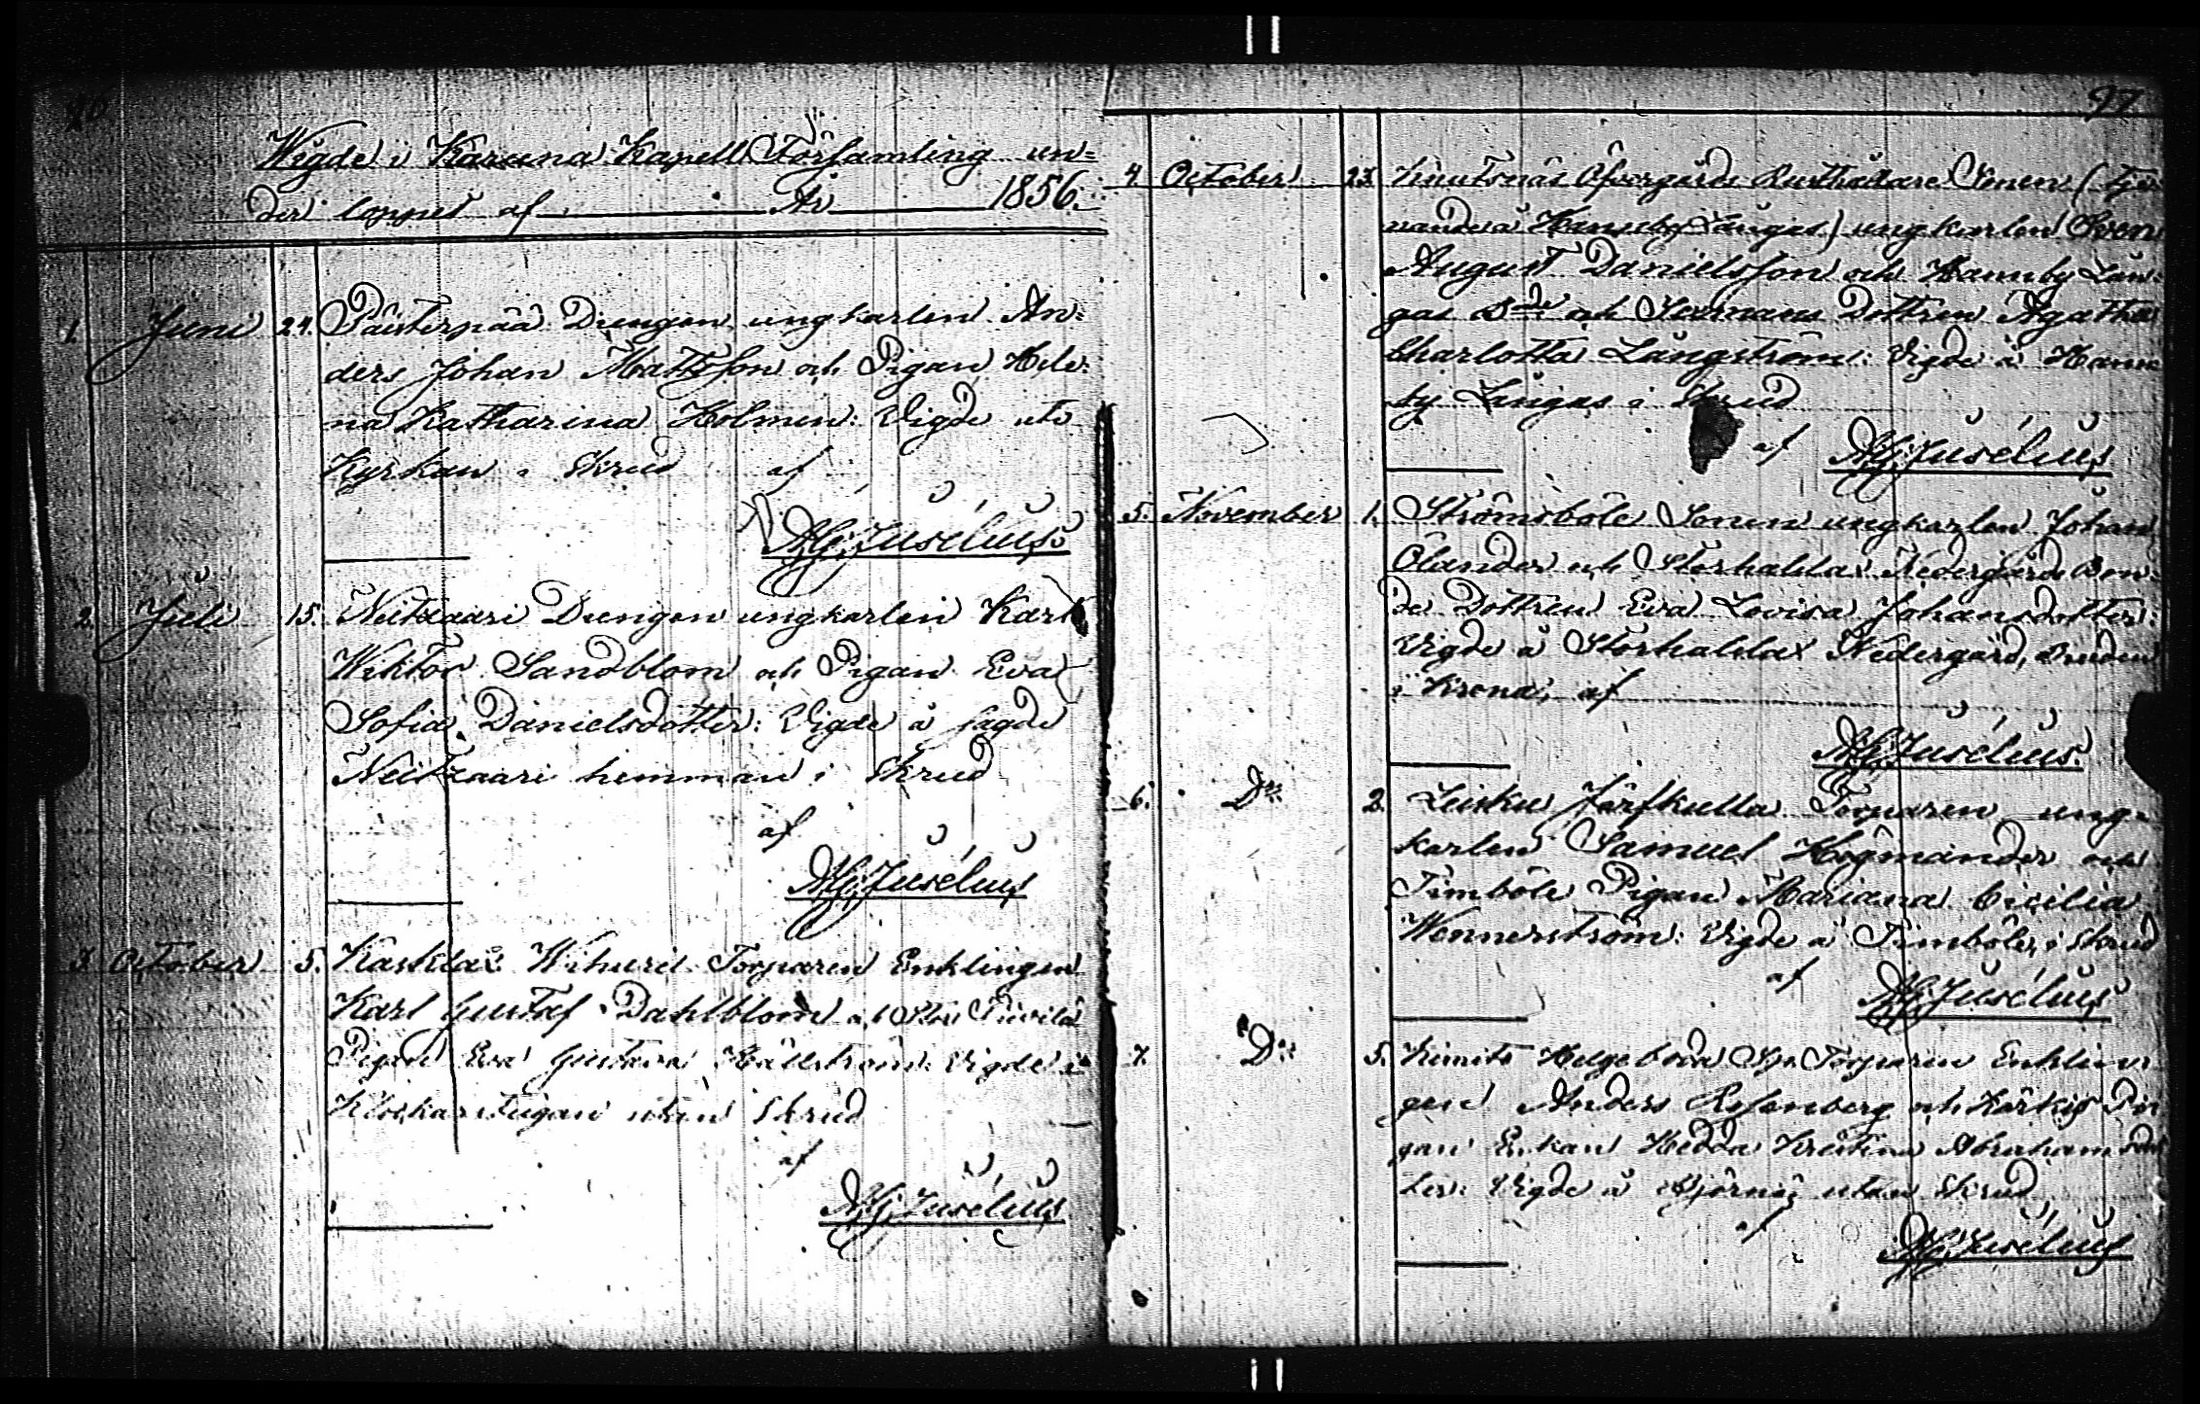 96
Wigde i Karuna Kapell Församling un=
der loppet af År 1856.
1. Juni 24. Päisterpää Drengen ungkarlen An=
ders Johan Mattsson och Pigan Hele=
na Katharina Holmen: Vigde uti
Kyrkan i Skrud af
A.G. Juselius.
2. Juli 15. Neitzaari Drengen ungkarlen Karl
Wiktor Sandblom och Pigan Eva
Sofia Danielsdotter: Vigde å sagde
Neitzaari hemman i Skrud
af
A.G. Juselius
3. October 5. Kasklax Wihuri Torparen Enklingen
Karl Gustaf Dahlblom och Stor
Pigan Eva Gustava Hällström: Vigde i
Klockarstugan utan Skrud
af
A.G. Juselius
97
4. October 23. Knutsnäs Öfvergårds Rusthållare Sonen (tje=
nande å Hannby Långas) ungkarlen Sven
August Danielsson och Hannby Lån=
gas och Dottren Agatha
Charlotta Långström: Vigde å Hann=
by Långas i Skrud
af A.G. Juselius
5. November 1. Strömsböle Sonen ungkarlen Johan
Olander och Storhalila Nedergårds Bon=
de Dottren Eva Lovisa Johansdotter:
Vigde å Storhalila Nedergård, Bruden
i Krona, af
A.G. Juselius.
6. Do 2. Leisku Torparen ung=
karlen Samuel Högmander och
Timböle Pigan Mariana Cicilia
Wennerström: Vigde å Timböle, i Skrud
af
A.G. Juselius
7. Do 5. Kimito Helgeboda Torparen Enklin=
gen Anders Rosenberg och Pi=
gan Enkan Hedda Kristina Abrahamsdot=
ter: Vigde å utan Skrud,
af
A.G. Juselius